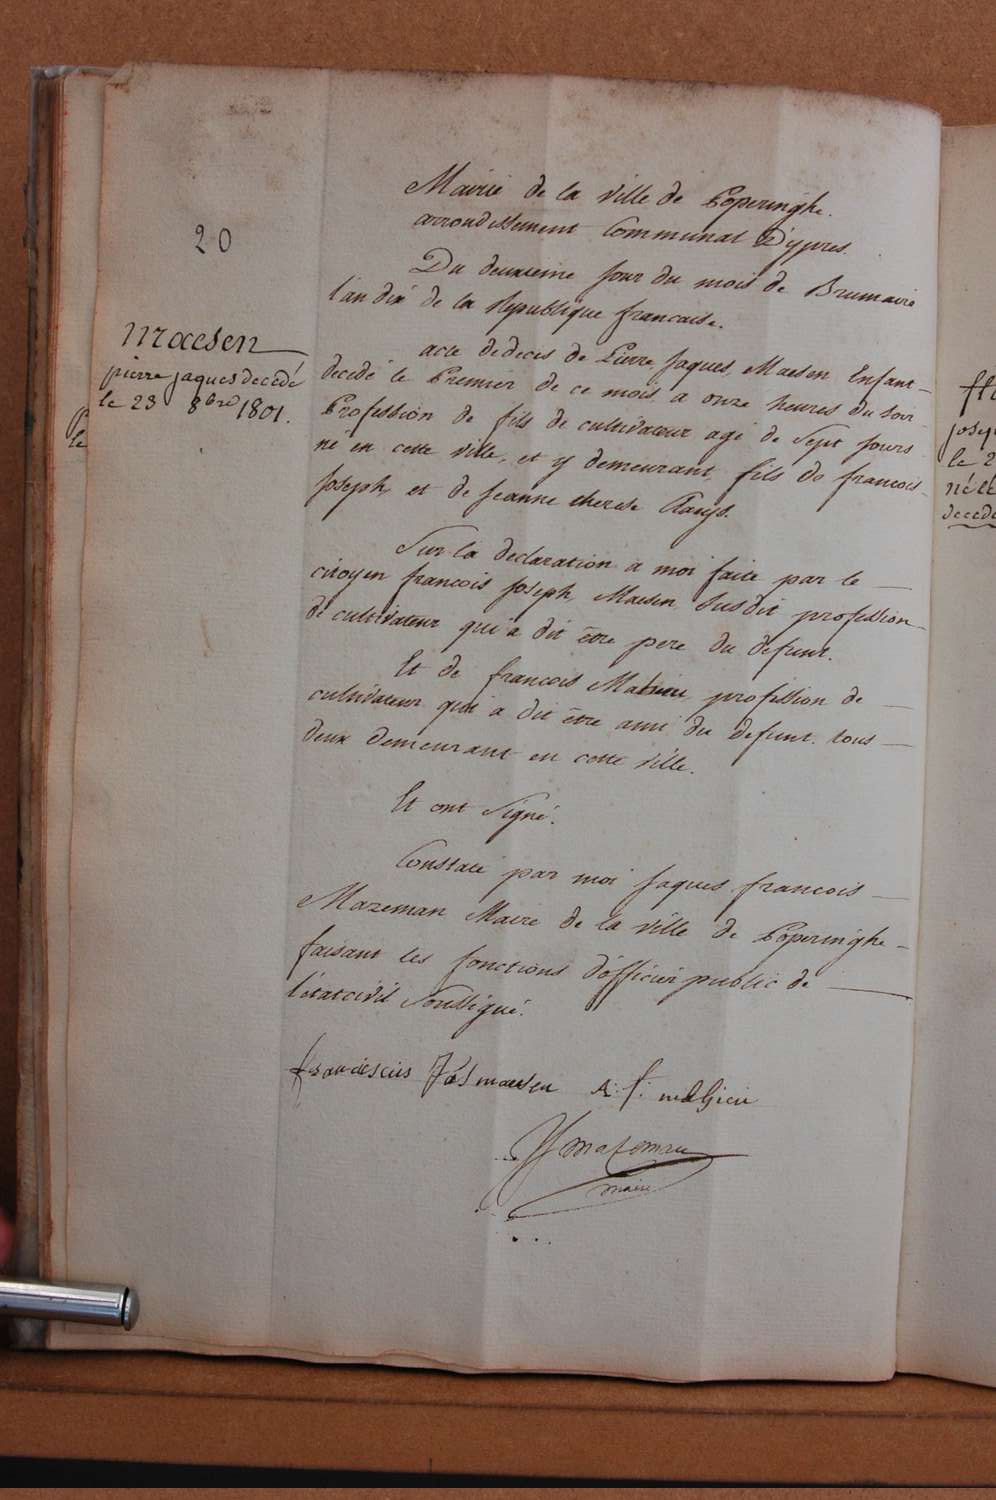 20
Maesen
pierre jaques decedé
le 23 8bre 1801.
Mairie de la Ville de Poperinghe.
arrondissement Communal D'ypres.
Du deuxieme Jour du mois de Brumaire
l'an dix de la Republique francaise.
acte dedecis de Pierre Jaques Maesen Enfant
decedé le Premier de ce mois a onze heures du soir
Profession de fils de cultivateur agé de Sept Jours
né en cette Ville, et y demeurant, fils de francois
Joseph, et de Jeanne therese
Sur la declaration a moi faite par le
citoyen francois Joseph Maesen Susdit profession
de cultivateur qui a dit être pere du defunt.
Et de francois profession de
cultivateur qui a dit être ami du defunt. tous
deux demeurant en cette Ville.
Et ont Signé.
Constaté par moi Jaques francois
Mazeman Maire de la Ville de Poperinghe
faisant les fonctions d'officier public de
l'etatcivil Soussigné.
Jos maesen A: f:
maire
le
josep
le 2
né le
decede